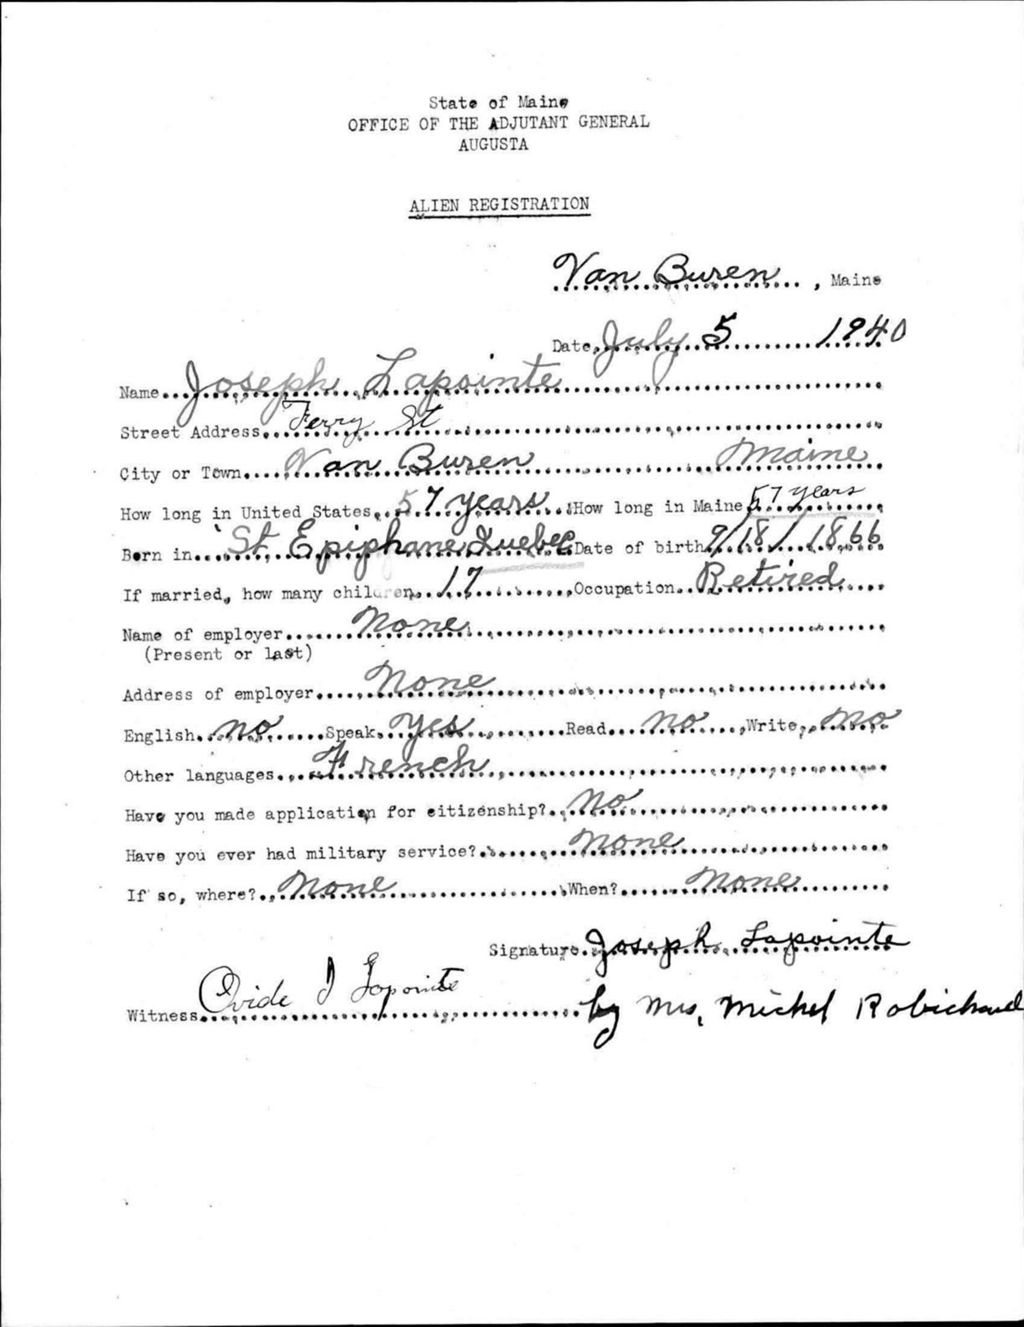 State of Maine
OFFICE OF THE ADJUTANT GENERAL
AUGUSTA
ALIEN REGISTRATION
Van Buren, Maine
Date July 5 1940
Name Joseph Lapointe
Street Address Ferry St
City or Town Van Buren Maine
How long in United States 57 years How long in Maine 57 years
Born in St Epiphane, Quebec Date of birth 9/18/1866
If married, how many children 17 Occupation Retired
Name of employer None
(Present or last)
Address of employer None
English no Speak Yes Read no Write no
Other languages French
Have you made application for citizenship? No
Have you ever had military service? None
If so, where? None When? None
Signature Joseph Lapointe
Witness Ovide J Lapointe by Mrs, Michel Robichaud